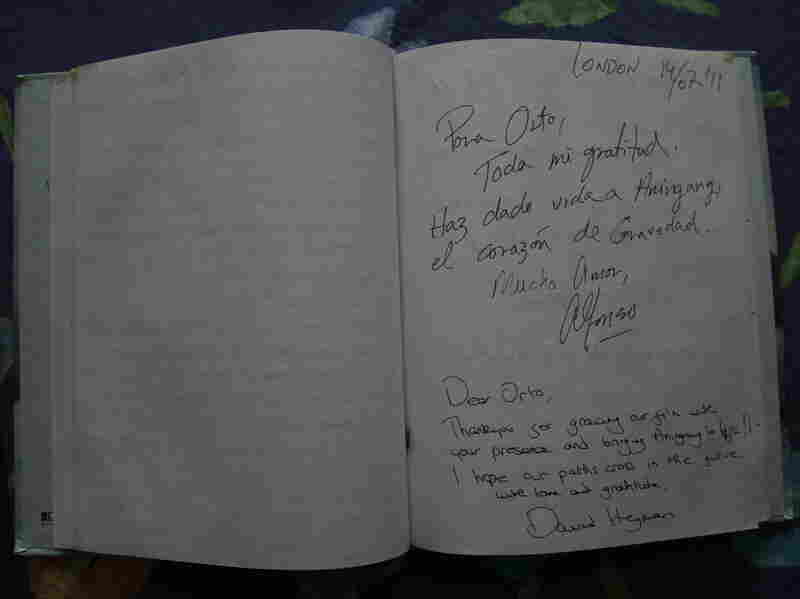 LONDON 14/07/'11
Para Orto,
Toda mi gratitud.
Haz dado vida a Aningang,
el corazón de Gravedad.
Mucho Amor,
Alfonso
Dear Orto,
Thankyou for gracing our film with
your presence and bringing Aningang to life!!
I hope our paths cross in the future
with love and gratitude.
David Heyman